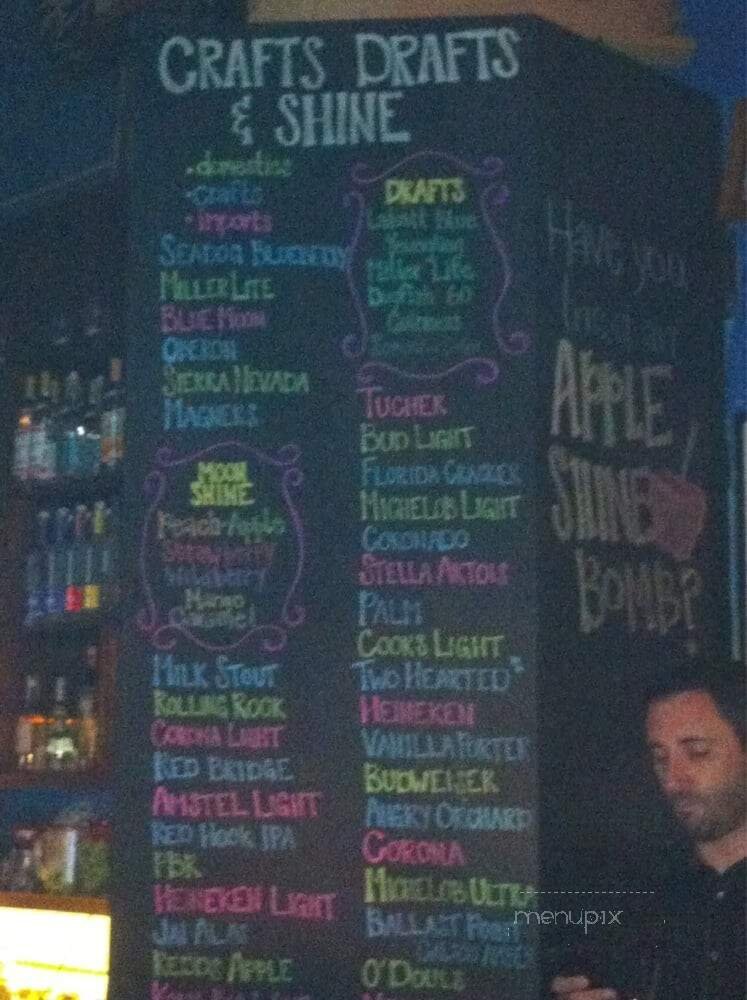 CRAFTS DRAFTS
& SHINE
• domestics
• crafts
• imports
SEADOG BLUEBERRY
MILLER LITE
BLUE MOON
OBERON
SIERRA NEVADA
MAGNERS
MOON
SHINE
Peach Apple
Strawberry
Wildberry
Mango
Caramel
MILK STOUT
ROLLING ROCK
CORONA LIGHT
RED BRIDGE
AMSTEL LIGHT
RED HOOK IPA
PBR
HEINEKEN LIGHT
JAI ALAI
REDDS APPLE
DRAFTS
Labatt Blue
Yuengling
Miller Lite
Dogfish 60
Guinness
TUCHER
BUD LIGHT
FLORIDA CRACKER
MICHELOB LIGHT
CORONADO
STELLA ARTOIS
PALM
COORS LIGHT
TWO HEARTED
HEINEKEN
VANILLA PORTER
BUDWEISER
ANGRY ORCHARD
CORONA
MICHELOB ULTRA
BALLAST POINT
O'DOULS
Have you
APPLE
SHINE
BOMB?
menupix